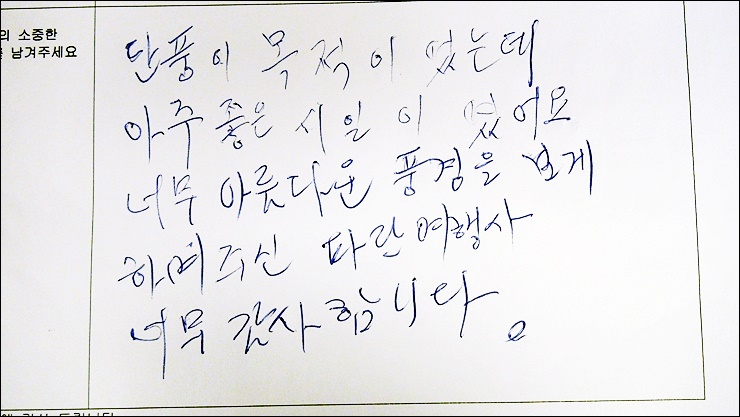 의 소중한
남겨주세요
단풍이 목적이 었는데
아주 좋은 시일이 였어요
너무 아름다운 풍경을 보게
하여주신 파란여행사
너무 감사합니다.